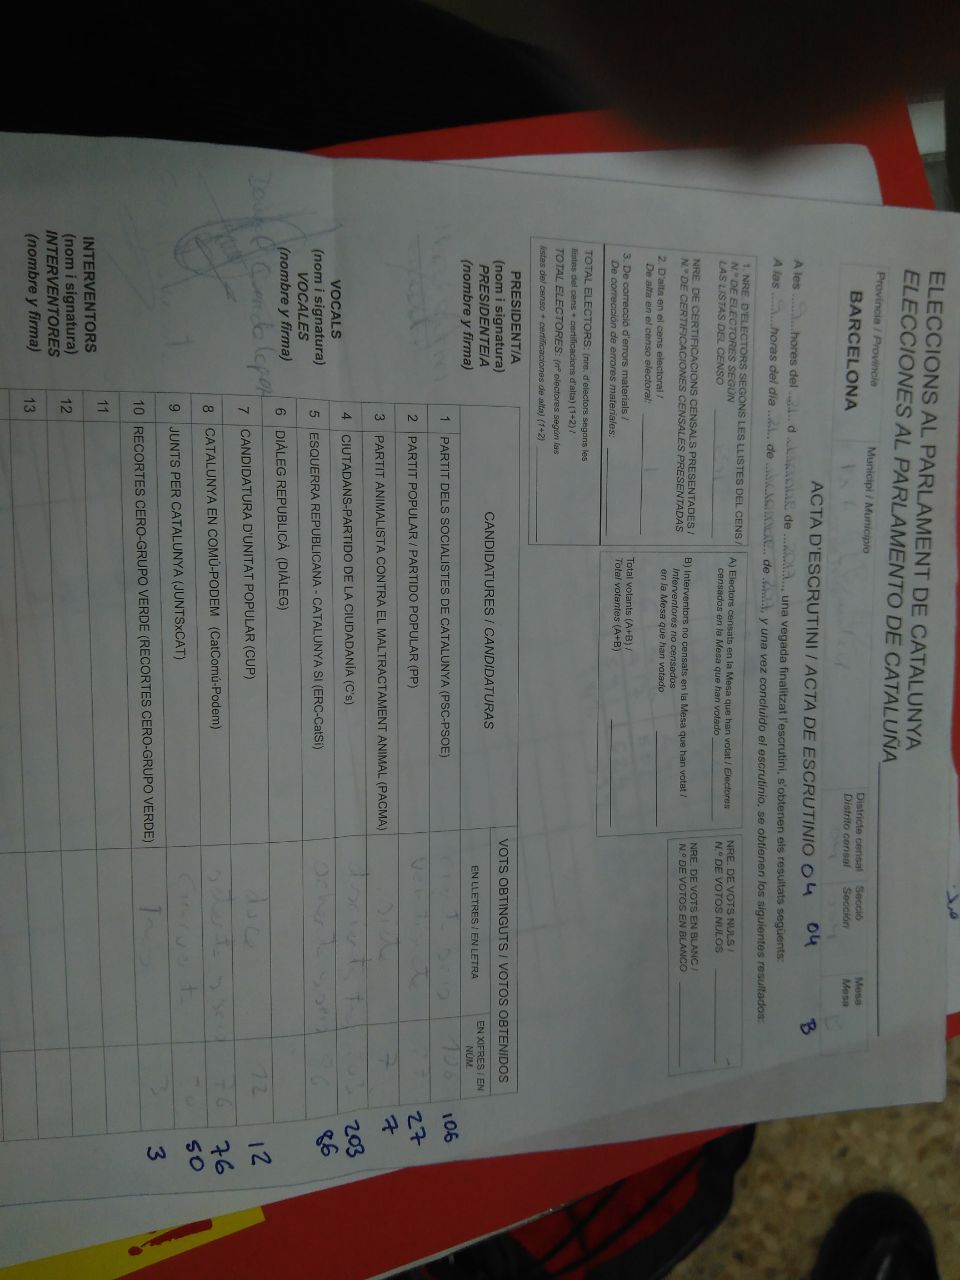 ELECCIONS AL PARLAMENT DE CATALUNYA
ELECCIONES AL PARLAMENTO DE CATALUÑA
Província / Provincia
BARCELONA
Municipi / Municipio
Districte censal
Distrito censal
Secció
Sección
Mesa
Mesa
ACTA D'ESCRUTINI / ACTA DE ESCRUTINIO 04 04 B
A les hores del d de , una vegada finalitzat l'escrutini, s'obtenen els resultats següents:
A las horas del día de de , y una vez concluido el escrutinio, se obtienen los siguientes resultados:
1. NRE. D'ELECTORS SEGONS LES LLISTES DEL CENS /
N.º DE ELECTORES SEGÚN
LAS LISTAS DEL CENSO
NRE. DE CERTIFICACIONS CENSALS PRESENTADES /
N.º DE CERTIFICACIONES CENSALES PRESENTADAS
2. D'alta en el cens electoral /
De alta en el censo electoral:
3. De correcció d'errors materials /
De corrección de errores materiales:
TOTAL ELECTORS: (nre. d'electors segons les
llistes del cens + certificacions d'alta) (1+2) /
TOTAL ELECTORES: (nº electores según las
listas del censo + certificaciones de alta) (1+2)
A) Electors censats en la Mesa que han votat / Electores
censados en la Mesa que han votado
B) Interventors no censats en la Mesa que han votat /
Interventores no censados
en la Mesa que han votado
Total votants (A+B) /
Total votantes (A+B)
NRE. DE VOTS NULS /
N.º DE VOTOS NULOS
NRE. DE VOTS EN BLANC /
N.º DE VOTOS EN BLANCO
PRESIDENT/A
(nom i signatura)
PRESIDENTE/A
(nombre y firma)
VOCALS
(nom i signatura)
VOCALES
(nombre y firma)
INTERVENTORS
(nom i signatura)
INTERVENTORES
(nombre y firma)
CANDIDATURES / CANDIDATURAS
VOTS OBTINGUTS / VOTOS OBTENIDOS
EN LLETRES / EN LETRA
EN XIFRES / EN NÚM.
1 PARTIT DELS SOCIALISTES DE CATALUNYA (PSC-PSOE) 106
2 PARTIT POPULAR / PARTIDO POPULAR (PP) 27
3 PARTIT ANIMALISTA CONTRA EL MALTRACTAMENT ANIMAL (PACMA) 7 7
4 CIUTADANS-PARTIDO DE LA CIUDADANÍA (C's) 203
5 ESQUERRA REPUBLICANA - CATALUNYA SÍ (ERC-CatSí) 86
6 DIÀLEG REPUBLICÀ (DIÀLEG)
7 CANDIDATURA D'UNITAT POPULAR (CUP) doce 12 12
8 CATALUNYA EN COMÚ-PODEM (CatComú-Podem) 76 76
9 JUNTS PER CATALUNYA (JUNTSxCAT) 50
10 RECORTES CERO-GRUPO VERDE (RECORTES CERO-GRUPO VERDE) 3 3
11
12
13